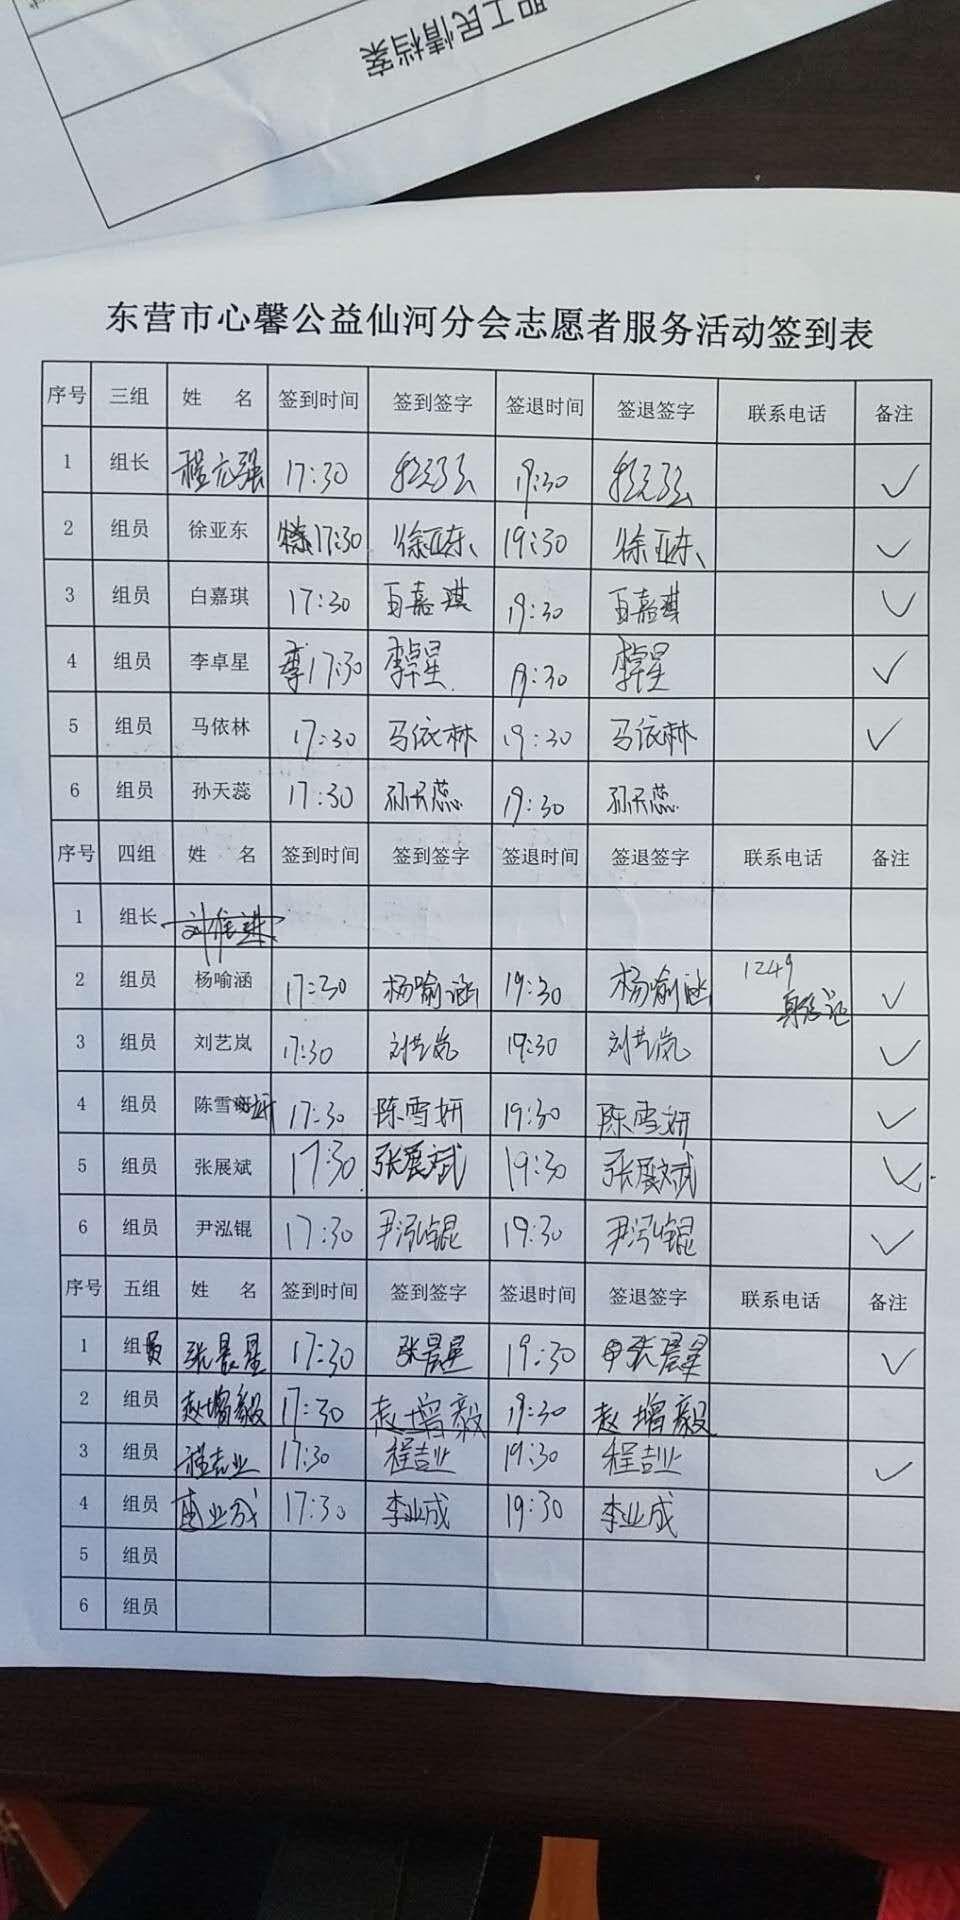 职工民情档案
东营市心馨公益仙河分会志愿者服务活动签到表
序号 三组 姓 名 签到时间 签到签字 签退时间 签退签字 联系电话 备注
1 组长 17:30 19:30 ✓
2 组员 徐亚东 17:30 徐亚东 19:30 徐亚东 ✓
3 组员 白嘉琪 17:30 百嘉琪 19:30 百嘉琪 ✓
4 组员 李卓星 17:30 李卓星 19:30 李卓星 ✓
5 组员 马依林 17:30 马依林 19:30 马依林 ✓
6 组员 孙天蕊 17:30 孙天蕊 19:30 孙天蕊
序号 四组 姓 名 签到时间 签到签字 签退时间 签退签字 联系电话 备注
1 组长
2 组员 杨喻涵 17:30 杨喻涵 19:30 杨喻涵 1249 ✓
3 组员 刘艺岚 17:30 刘艺岚 19:30 刘艺岚 ✓
4 组员 陈雪妍 17:30 陈雪妍 19:30 陈雪妍 ✓
5 组员 张展斌 17:30 张展斌 19:30 张展斌 ✓
6 组员 尹泓锟 17:30 尹泓锟 19:30 尹泓锟 ✓
序号 五组 姓 名 签到时间 签到签字 签退时间 签退签字 联系电话 备注
1 组员 张晨星 17:30 张晨星 19:30 张晨星 ✓
2 组员 赵增毅 17:30 赵增毅 19:30 赵增毅
3 组员 程吉业 17:30 程吉业 19:30 程吉业 ✓
4 组员 业成 17:30 李业成 19:30 李业成
5 组员
6 组员